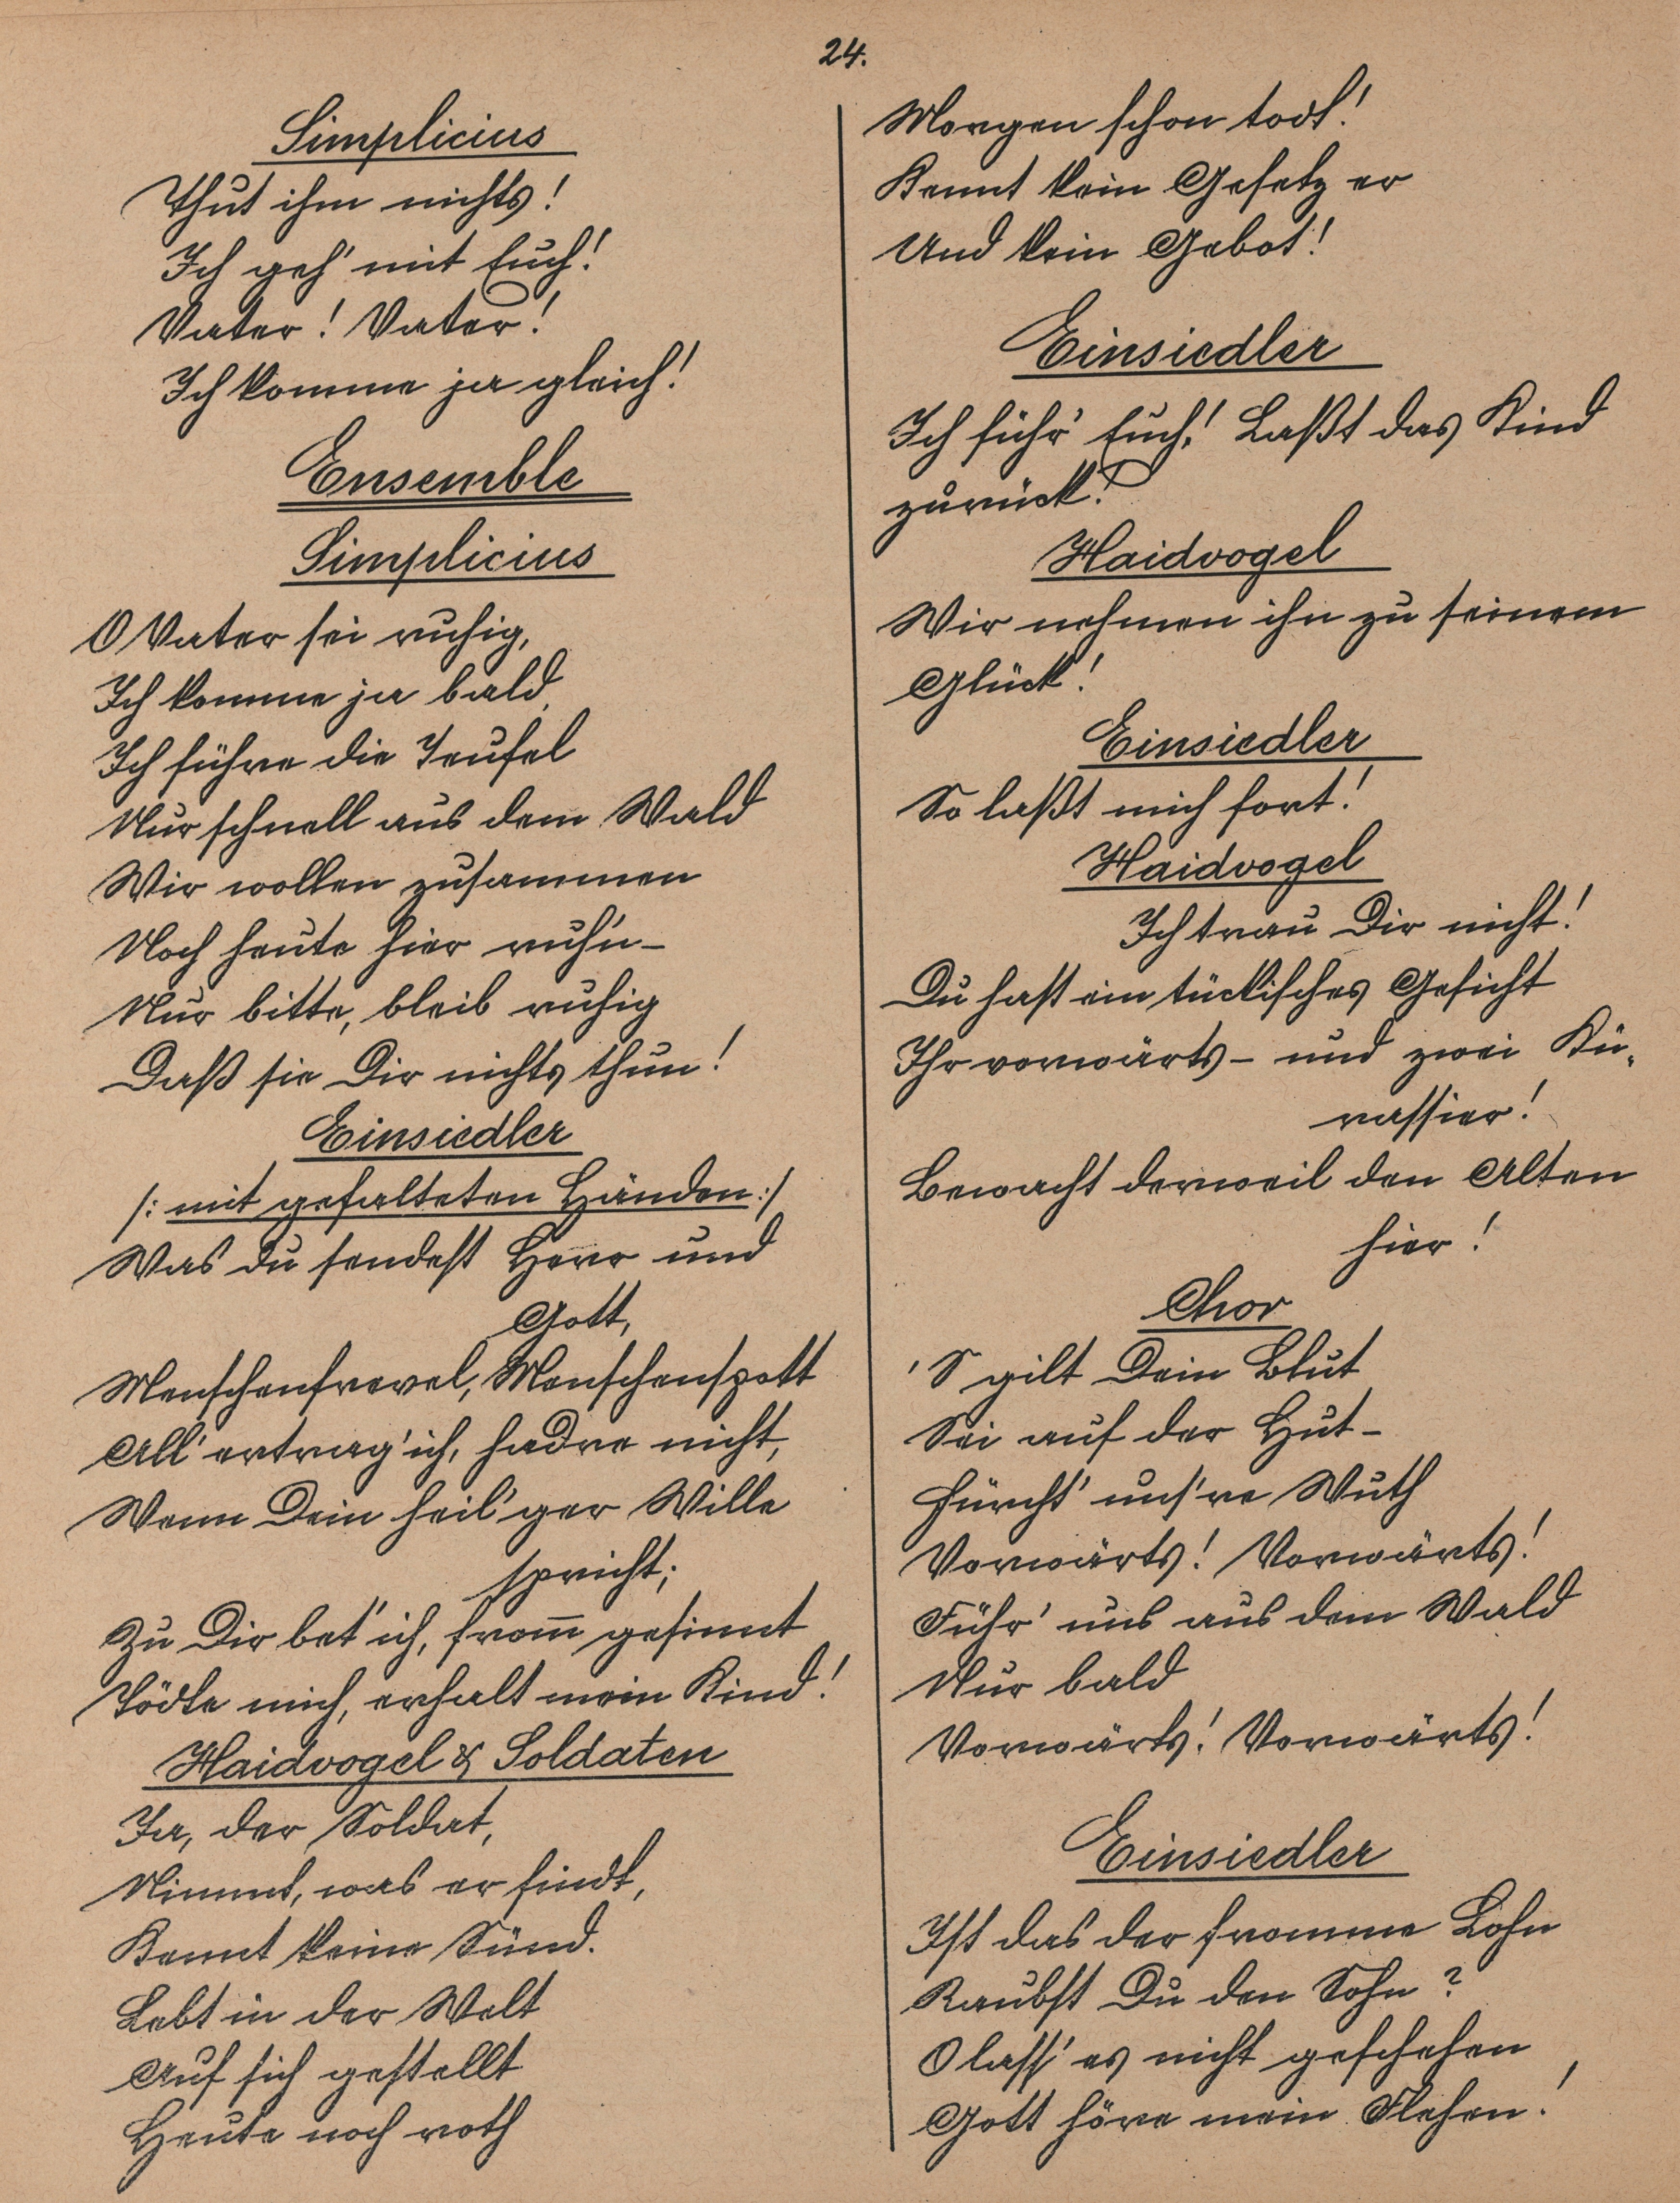 24.
Simplicius
Thut ihm nichts!
Ich geh' mit Euch!
Vater! Vater!
Ich komme ja gleich!
Ensemble
Simplicius
O Vater sei ruhig,
Ich komme ja bald,
Ich führe die Teufel
Nur schnell aus dem Wald
Wir wollen zusammen
Noch heute hier ruh'n–
Nur bitte, bleib ruhig
Daß sie Dir nichts thun!
Einsiedler
/: mit gefalteten Händen :/
Was du sendest Herr und
Gott,
Menschenfrevel, Menschenspott
All' ertrag' ich, hadre nicht,
Wenn Dein heil'ger Wille
spricht;
Zu Dir bet' ich, from̄ gesinnt
Tödte mich, erhalt mein Kind!
Haidvogel & Soldaten
Ja, der Soldat,
Nimmt, was er findt,
Kennt keine Sünd.
Lebt in der Welt
Auf sich gestellt
Heute noch roth
Morgen schon todt!
Kennt kein Gesetz er
Und kein Gebot!
Einsiedler
Ich führ' Euch! Laßt das Kind
zurück!
Haidvogel
Wir nehmen ihn zu seinem
Glück!
Einsiedler
So laßt mich fort!
Haidvogel
Ich trau Dir nicht!
Du hast ein tückisches Gesicht
Ihr vorwärts – und zwei Kü-
rassier!
Bewacht derweil den Alten
hier!
Chor
'S gilt Dein Blut
Sei auf der Hut –
Fürcht' uns're Wuth
Vorwärts! Vorwärts!
Führ' uns aus dem Wald
Nur bald
Vorwärts! Vorwärts!
Einsiedler
Ist das der fromme Lohn
Raubst Du den Sohn?
O lass' es nicht geschehen
Gott höre mein Flehen!